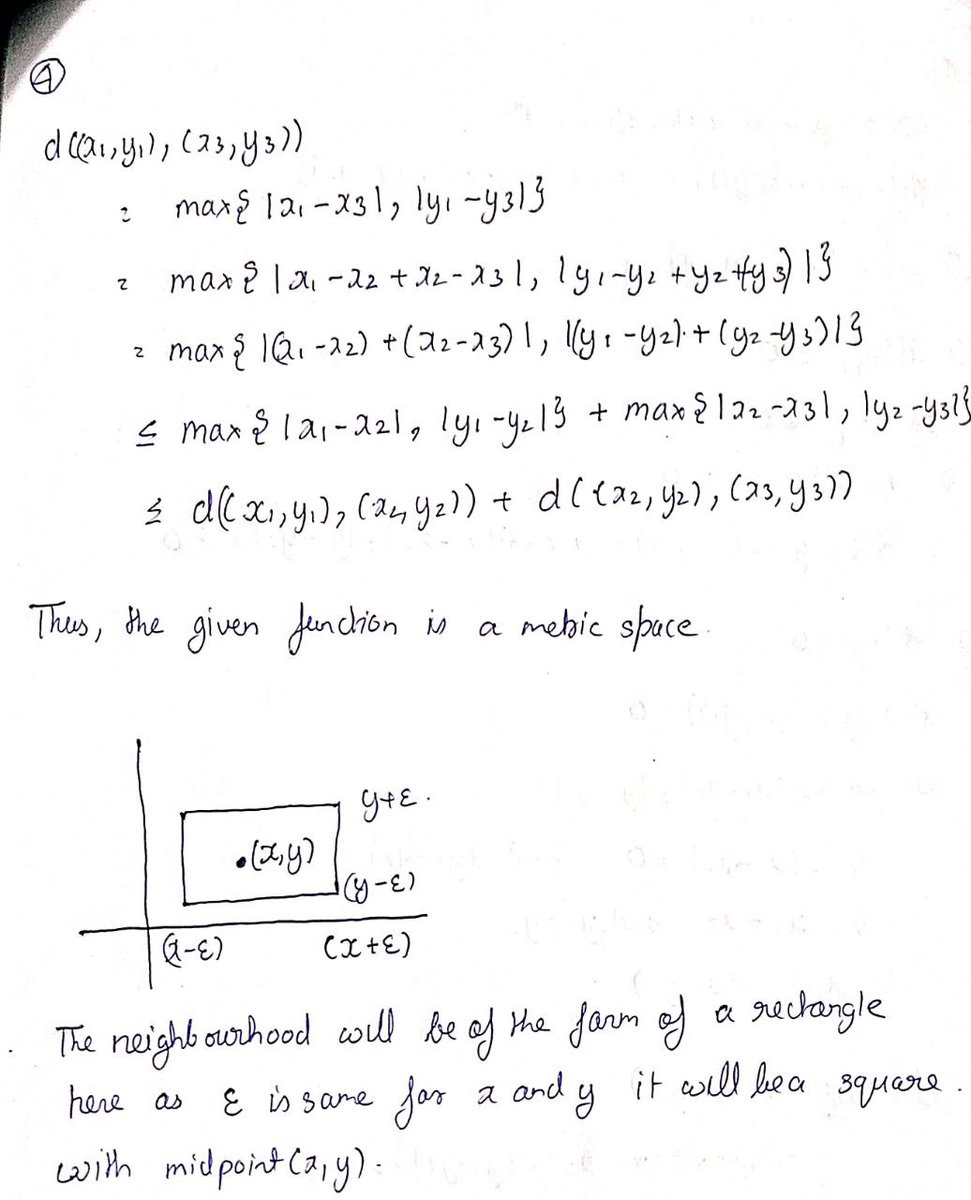 ④
d((x₁,y₁), (x₃,y₃))
= max{ |x₁ - x₃|, |y₁ - y₃|}
= max{ |x₁ - x₂ + x₂ - x₃|, |y₁ - y₂ + y₂ + (y₃) |}
= max{ |(x₁ - x₂) + (x₂ - x₃)|, |(y₁ - y₂) + (y₂ - y₃)|}
≤ max{ |x₁ - x₂|, |y₁ - y₂|} + max{ |x₂ - x₃|, |y₂ - y₃|}
≤ d((x₁,y₁), (x₂,y₂)) + d((x₂,y₂), (x₃,y₃))
Thus, the given function is a metric space.
y+ε.
(x,y)
(y-ε)
(x-ε) (x+ε)
The neighbourhood will be of the form of a rectangle
here as ε is same for x and y it will be a square.
with midpoint (x,y).